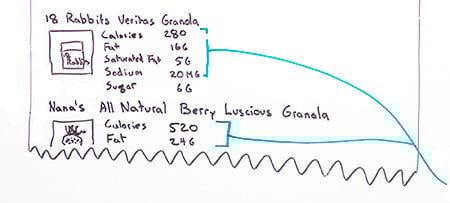 18 Rabbits Veritas Granola
Calories 280
Fat 16G
Saturated Fat 5G
Sodium 20MG
Sugar 6G
Nana's All Natural Berry Luscious Granola
Calories 520
Fat 24G